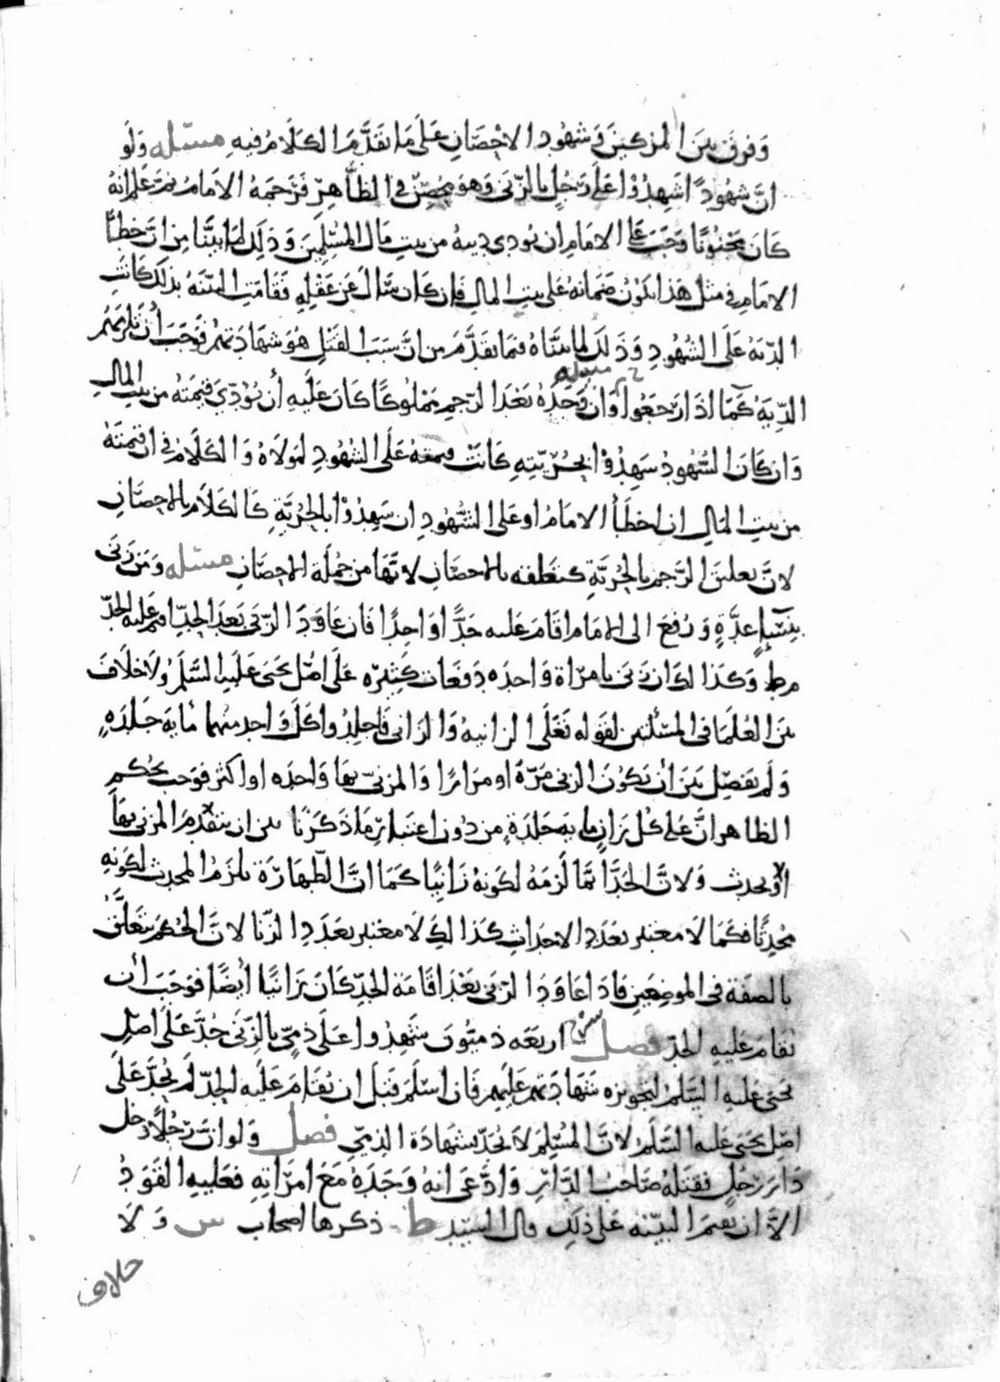 وَفرق بين المزكين في شهود الاحصان على ما تقدم الكلام فيه مسئله ولو
ان شهودًا شهدوا على رجل بالزنى وهو محصن في الظاهر فرجمه الامام ثم علم انه
كان مجنونا وجب على الامام ان يودي ديته من بيت مال المسلمين وذلك لما بيّنا من ان خطأ
الامام في مثل هذا يكون ضمانه على بيت المال فان كان سأل عن عقله فقامت البينه بذلك كانت
الديه على الشهود وذلك لما بيناه فيما تقدم من ان سبب القتل هو شهادتهم فوجب أن تلزمهم
الديه كما اذا رجعوا مسئله وان وجده بعد الرجم مملوكًا كان عليه أن يؤدي قيمته من بيت المال
وان كان الشهود شهدوا بحريته كانت قيمته على الشهود لمولاه والكلام في ان قيمته
من بيت المال ان اخطأ الامام او على الشهود ان شهدوا بالحرية كالكلام بالاحصان
لان تعلق الرجم بالحرية كتعلقه بالاحصان لانها من جملة الاحصان مسئله ومن زنى
بنساء عدة ورفع الى الامام اقام عليه حدًّا واحدًا فان عاود الزنى بعد الحد اقيم عليه الحد
ط وكذا لو ان زنى بامراة واحده دفعات كثيره على اصل يحيى عليه السلم ولا خلاف
بين العلما في المسئلتين لقوله تعلى الزانيه والزانى فاجلدوا كل واحد منهما مايه جلده
ولم يفصل بين ان يكون الزنى مرة او مرارًا والمزني بها واحده او اكثر فوجب بحكم
الظاهر ان على كل زان مايه جلدة من دون اعتبار ما ذكرنا من ان يتقدم المزني بها
او يحدث ولان الحد انما لزمه لكونه زانيًا كما ان الطهارة تلزم المحدث لكونه
محدثًا فكما لا معتبر بعدد الاحداث كذلك لا معتبر بعدد الزنا لان الحكم يتعلق
بالصفة في الموضعين فاذا عاود الزنى بعد اقامة الحد كان زانيًا ايضًا فوجب ان
يقام عليه الحد فصل اربعه ذميون شهدوا على ذمي بالزنى حد على اصل
يحيى عليه السلم لتجويزه شهادتهم عليهم فان اسلم قبل ان يقام عليه الحد لم يحد على
اصل يحيى عليه السلم لان المسلم لا يحد بشهادة الذمي فصل ولو ان رجلًا دخل
دار رجل فقتله صاحب الدار وادعى انه وجده مع امراته فعليه القود
الا ان يقيم البينه على ذلك قال السيد ط ذكرها اصحاب ش ولا
خلاف